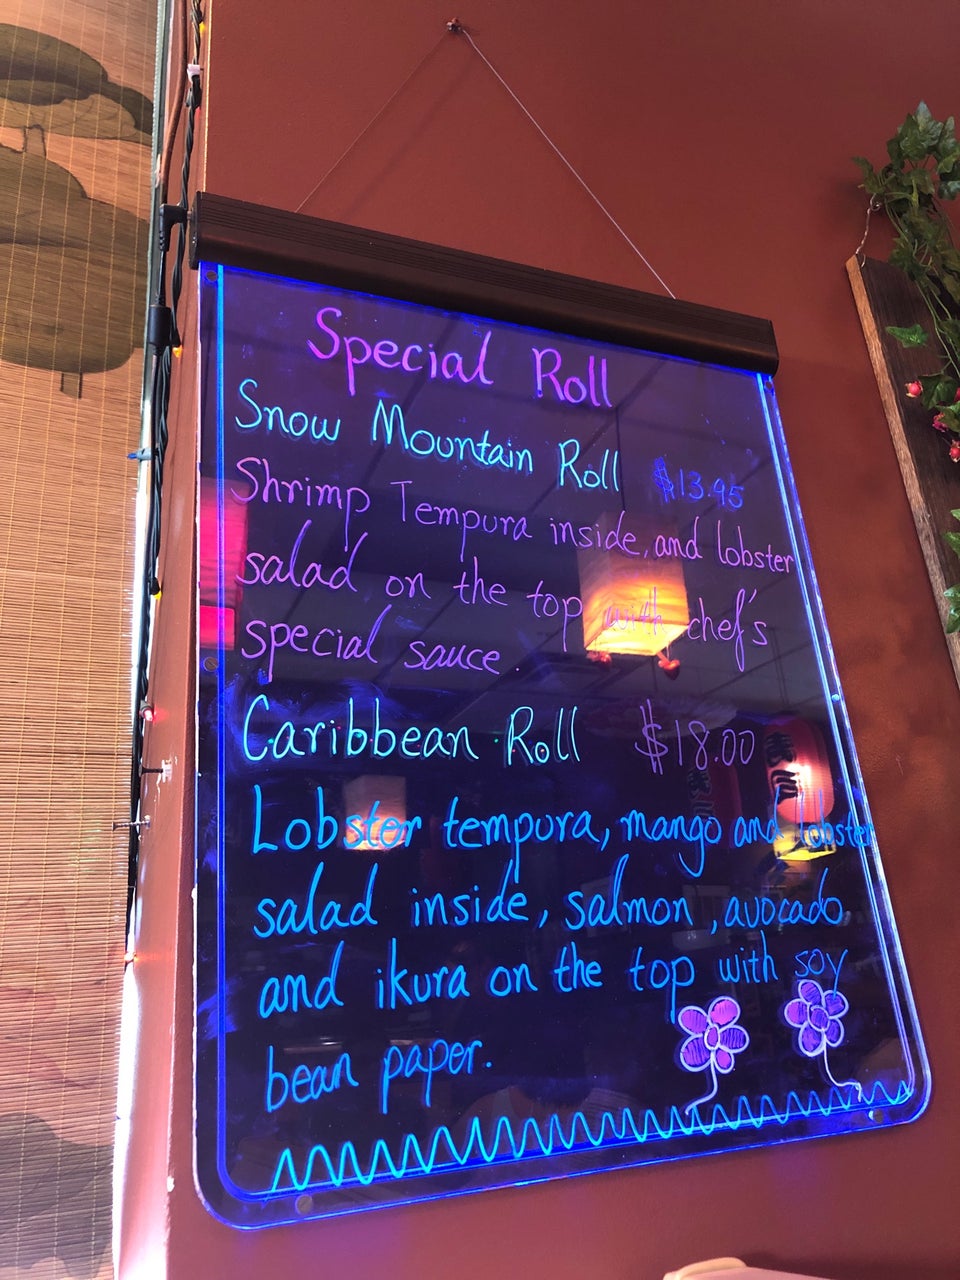 Special Roll
Snow Mountain Roll $13.95
Shrimp Tempura inside, and lobster
salad on the top with chef's
special sauce.
Caribbean Roll $18.00
Lobster tempura, mango and lobster
salad inside, salmon, avocado
and ikura on the top with soy
bean paper.